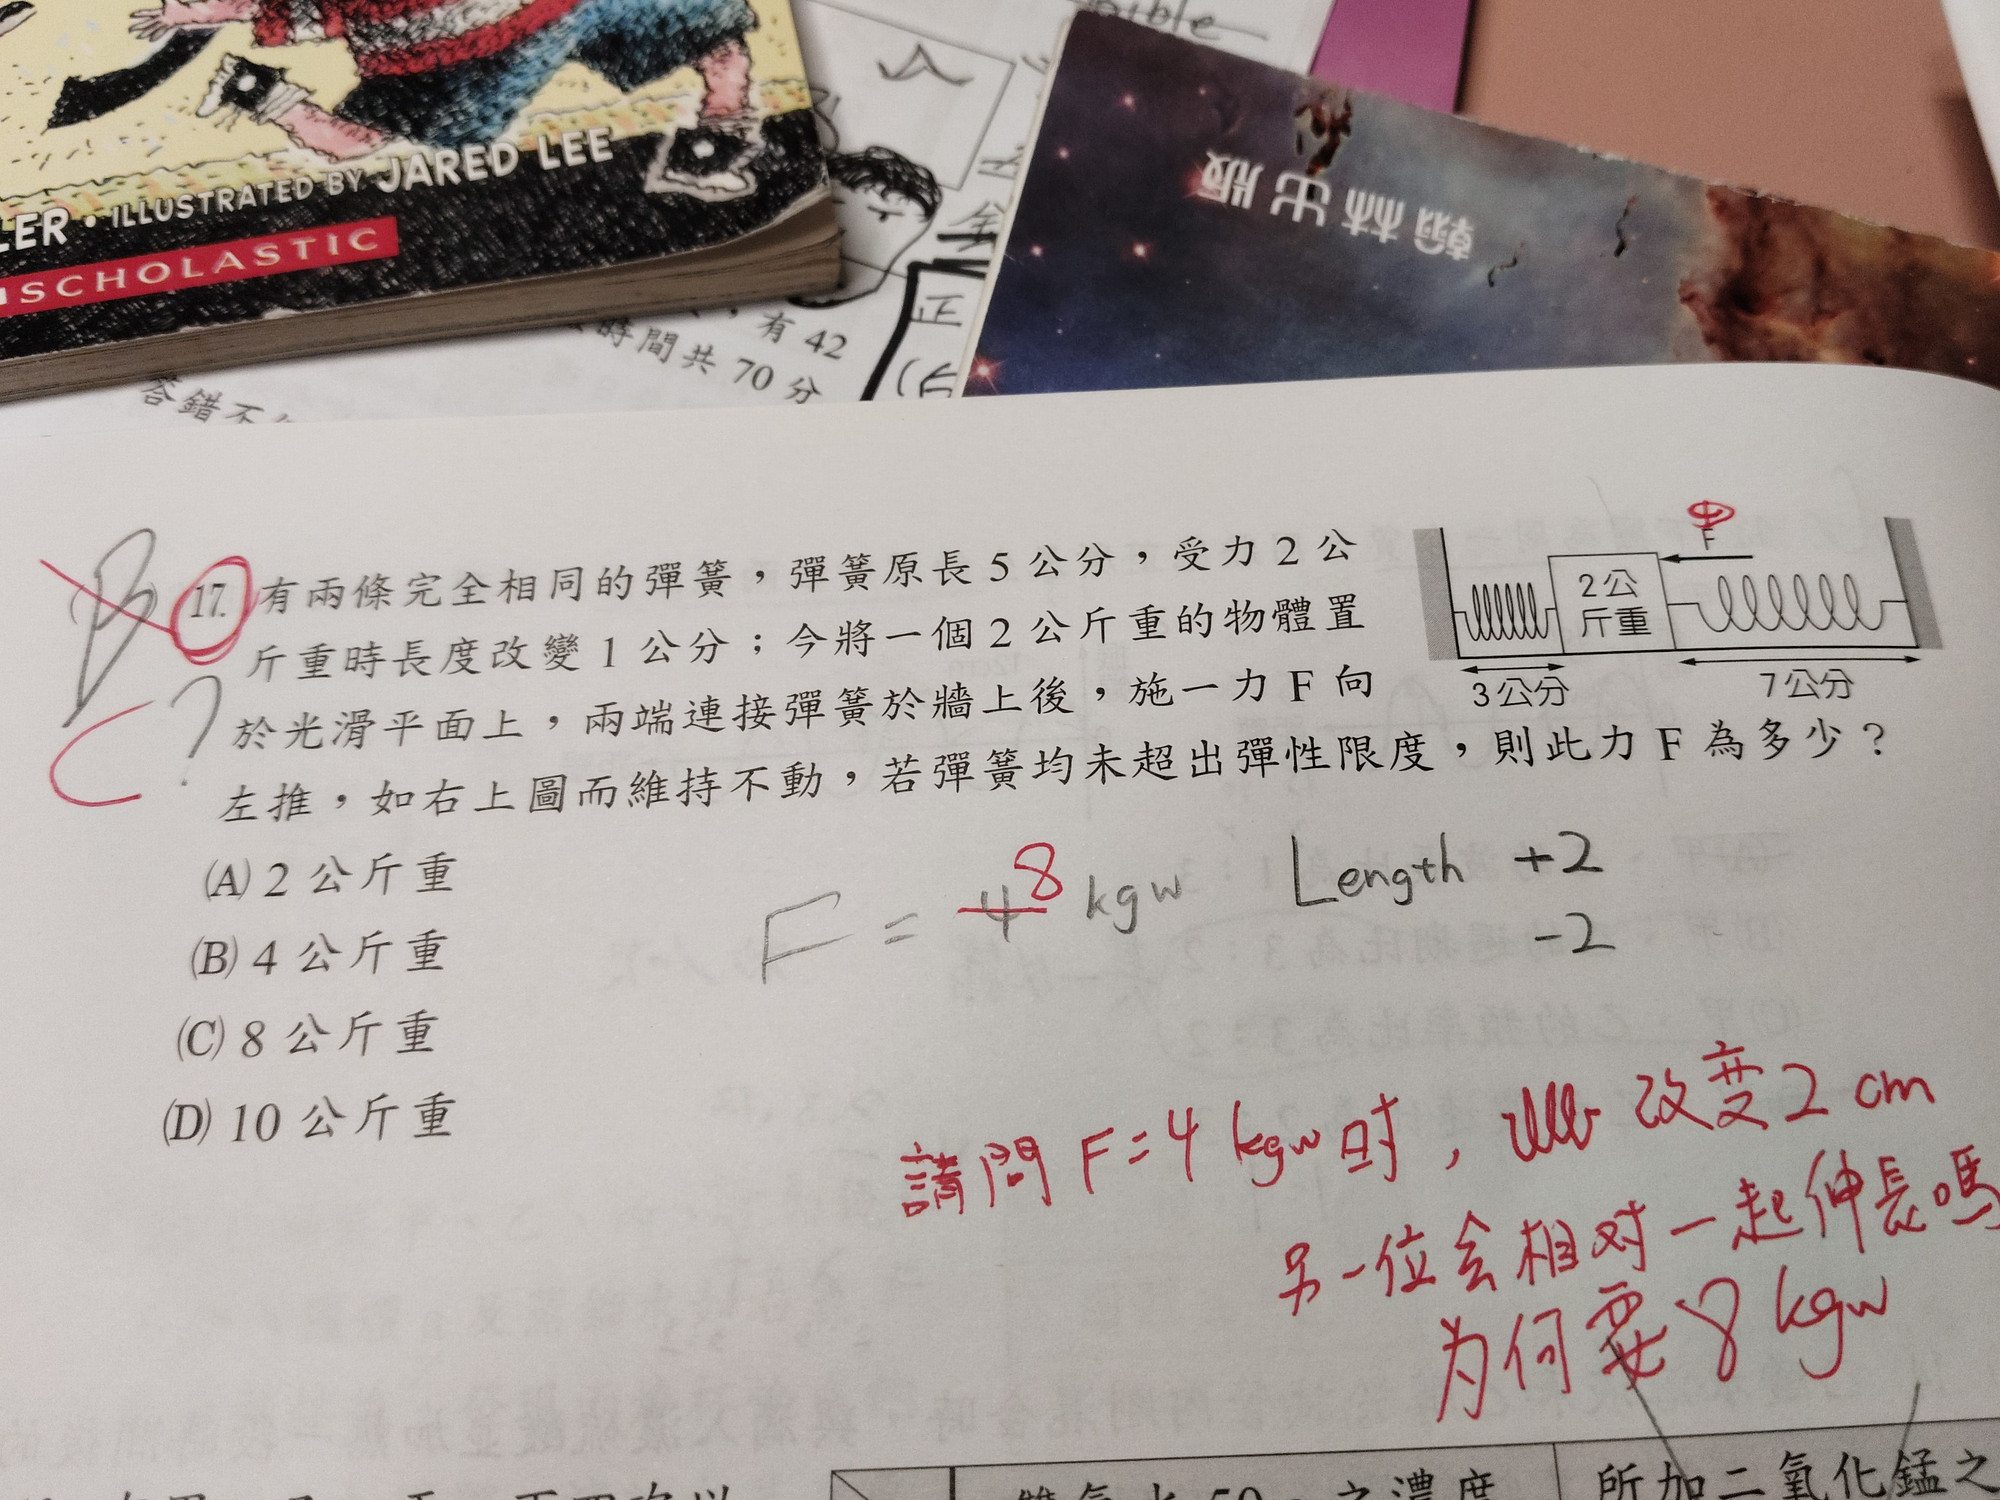 LER · ILLUSTRATED BY JARED LEE
SCHOLASTIC
ible
翰林出版
正
，有 42
時間共 70 分
答錯不
17. 有兩條完全相同的彈簧，彈簧原長 5 公分，受力 2 公
斤重時長度改變 1 公分；今將一個 2 公斤重的物體置
於光滑平面上，兩端連接彈簧於牆上後，施一力 F 向
左推，如右上圖而維持不動，若彈簧均未超出彈性限度，則此力 F 為多少？
F
2公
斤重
3公分
7公分
B
C ?
(A) 2 公斤重
(B) 4 公斤重
(C) 8 公斤重
(D) 10 公斤重
F = 4 8 kgw
Length +2
-2
請問 F=4 kgw 时， 改变2 cm
另一位会相对一起伸長嗎
为何要 8 kgw
所加二氧化錳之